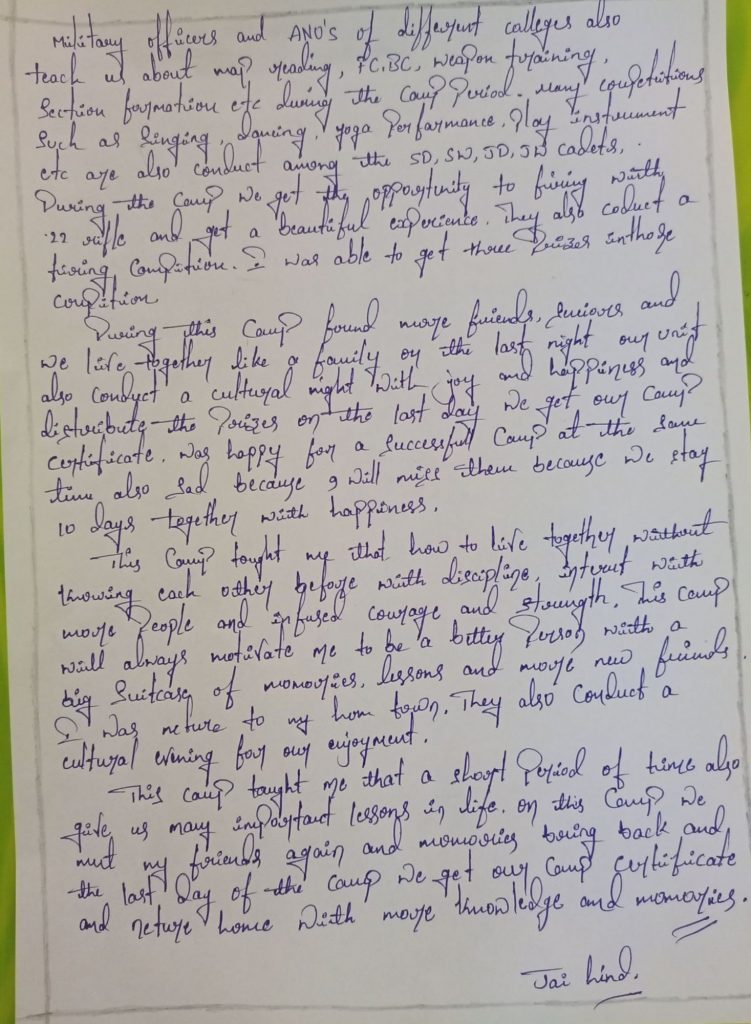 Military officers and ANO'S of different calleges also
teach us about map reading, FC.BC, weapon training,
Section formation etc during the Camp Period. Many coupetitions
Such as Singing, dancing, yoga Performance, Play instrument
etc are also conduct among the SD, SW, JD, JW cadets,.
During the Camp we get the opportunity to firing with
.22 rifle and get a beautiful experience. They also coduct a
firing Compition. I was able to get three Prizes inthose
coupition
During this Camp found more friends, Seniors and
we live together like a family on the last night our unit
also conduct a cultural night with joy and happiness and
distribute the Prizes on the last day we get our Camp
certificate. was happy for a successful Camp at the same
time also sad because I will miss them because we stay
10 days together with happiness.
This Camp tought me that how to live together without
knowing each other before with discipline, interut with
more People and infused courage and strength. This camp
will always motivate me to be a better Person with a
big Suitcase of momories, lessons and more new friends.
I was neture to my hom town. They also conduct a
cultural evening for our enjoyment.
This camp taught me that a short Period of time also
give us many important lessons in life. on this Camp we
mut my friends again and momories bring back and
the last day of the Camp we get our Camp certificate
and neture home with more knowledge and momories.
Jai hind.